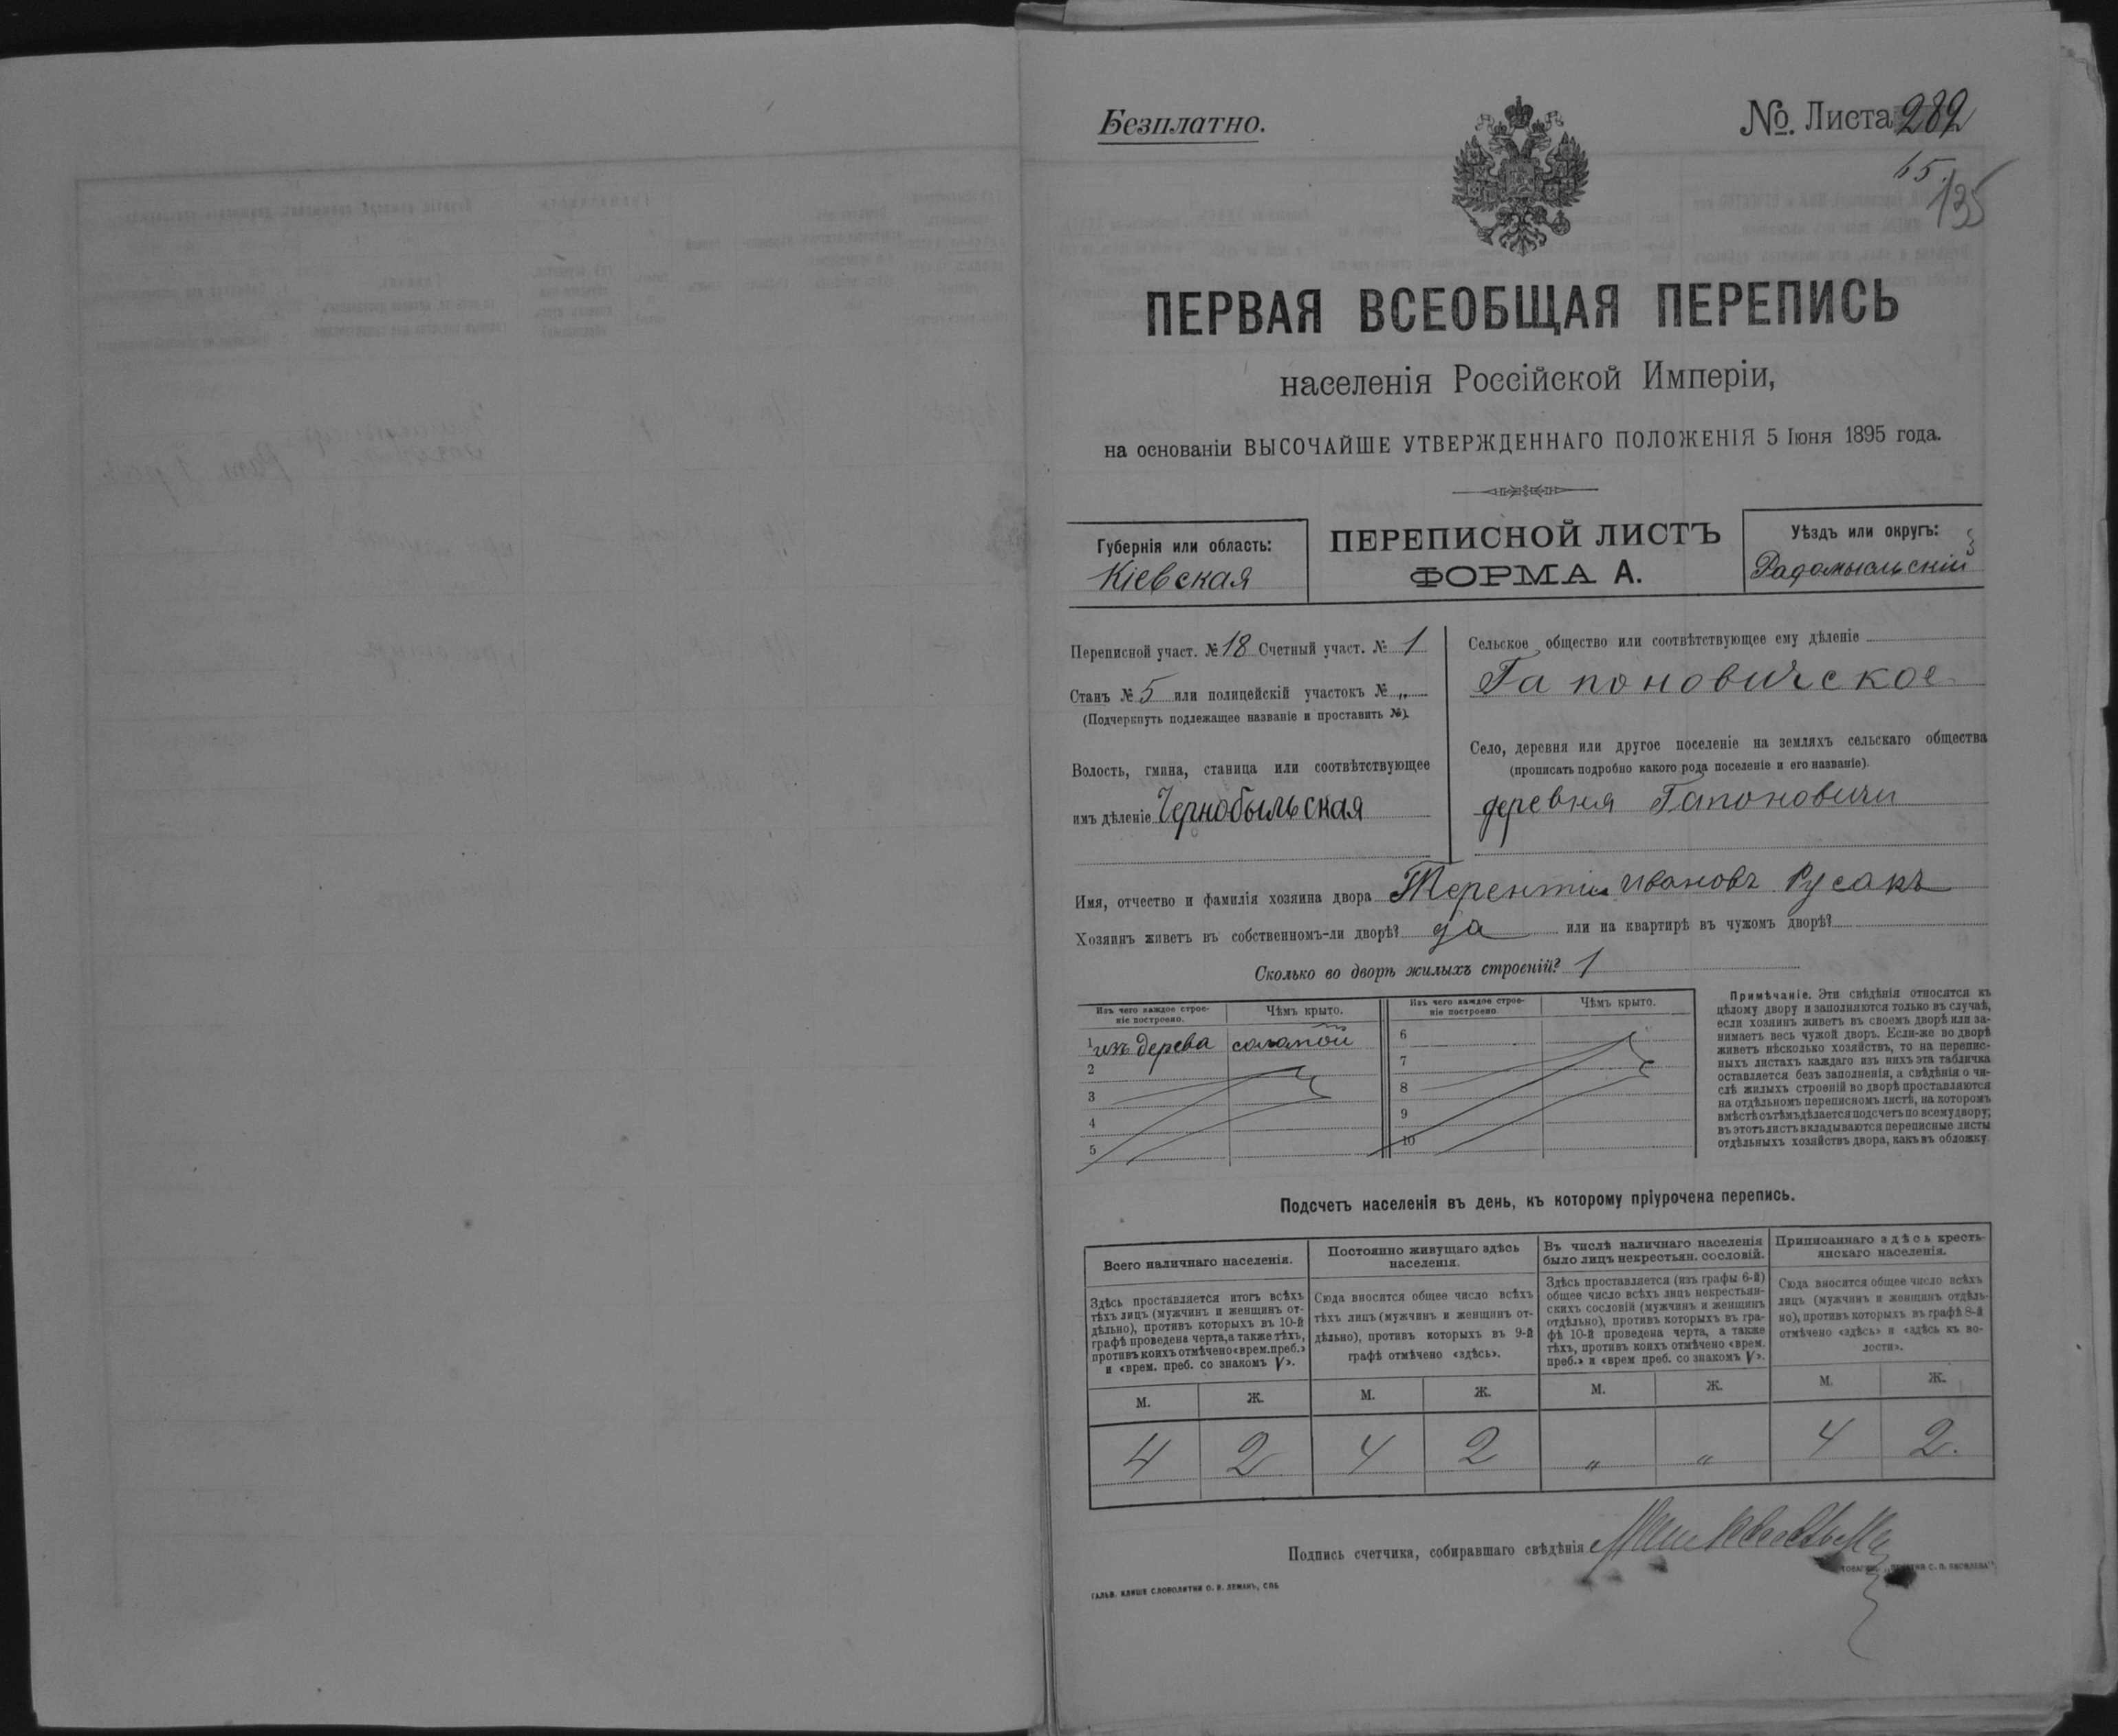 Безплатно.
№. Листа 282
65.
135
ПЕРВАЯ ВСЕОБЩАЯ ПЕРЕПИСЬ
населенія Россійской Имперіи,
на основаніи ВЫСОЧАЙШЕ УТВЕРЖДЕННАГО ПОЛОЖЕНІЯ 5 Іюня 1895 года.
Губернія или область:
Кіевская
ПЕРЕПИСНОЙ ЛИСТЪ
ФОРМА А.
Уѣздъ или округъ:
Радомысльскій
Переписной участ. № 18 Счетный участ. № 1
Станъ № 5 или полицейскій участокъ № „
(Подчеркнуть подлежащее названіе и проставить №).
Волость, гмина, станица или соотвѣтствующее
имъ дѣленіе Чернобыльская
Сельское общество или соотвѣтствующее ему дѣленіе
Гапоновичское
Село, деревня или другое поселеніе на земляхъ сельскаго общества
(прописать подробно какого рода поселеніе и его названіе).
деревня Гапоновичи
Имя, отчество и фамилія хозяина двора Терентій Ивановъ Русакъ
Хозяинъ живетъ въ собственномъ-ли дворѣ? да или на квартирѣ въ чужомъ дворѣ?
Сколько во дворѣ жилыхъ строеній? 1
Изъ чего каждое строе-
ніе построено.
Чѣмъ крыто.
Изъ чего каждое строе-
ніе построено.
Чѣмъ крыто.
1 изъ дерева соломой
2
3
4
5
6
7
8
9
10
Примѣчаніе. Эти свѣдѣнія относятся къ
цѣлому двору и заполняются только въ случаѣ,
если хозяинъ живетъ въ своемъ дворѣ или за-
нимаетъ весь чужой дворъ. Если-же во дворѣ
живетъ нѣсколько хозяйствъ, то на перепис-
ныхъ листахъ каждаго изъ нихъ эта табличка
оставляется безъ заполненія, а свѣдѣнія о чи-
слѣ жилыхъ строеній во дворѣ проставляются
на отдѣльномъ переписномъ листѣ, на которомъ
вмѣстѣ съ тѣмъ дѣлается подсчетъ по всему двору;
въ этотъ листъ вкладываются переписные листы
отдѣльныхъ хозяйствъ двора, какъ въ обложку
Подсчетъ населенія въ день, къ которому пріурочена перепись.
Всего наличнаго населенія.
Здѣсь проставляется итогъ всѣхъ
тѣхъ лицъ (мужчинъ и женщинъ от-
дѣльно), противъ которыхъ въ 10-й
графѣ проведена черта, а также тѣхъ,
противъ коихъ отмѣчено «врем. преб.»
и «врем. преб. со знакомъ V».
Постоянно живущаго здѣсь
населенія.
Сюда вносится общее число всѣхъ
тѣхъ лицъ (мужчинъ и женщинъ от-
дѣльно), противъ которыхъ въ 9-й
графѣ отмѣчено «здѣсь».
Въ числѣ наличнаго населенія
было лицъ некрестьян. сословій.
Здѣсь проставляется (изъ графы 6-й)
общее число всѣхъ лицъ некрестьян-
скихъ сословій (мужчинъ и женщинъ
отдѣльно), противъ которыхъ въ гра-
фѣ 10-й проведена черта, а также
тѣхъ, противъ коихъ отмѣчено «врем.
преб.» и «врем преб. со знакомъ V».
Приписаннаго здѣсь кресть-
янскаго населенія.
Сюда вносится общее число всѣхъ
лицъ (мужчинъ и женщинъ отдѣль-
но), противъ которыхъ въ графѣ 8-й
отмѣчено «здѣсь» и «здѣсь къ во-
лости».
М. Ж. М. Ж. М. Ж. М. Ж.
4 2 4 2 „ „ 4 2.
Подпись счетчика, собиравшаго свѣдѣнія
ГАЛЬВ. КЛИШЕ СЛОВОЛИТНИ О. И. ЛЕМАНЪ, СПБ